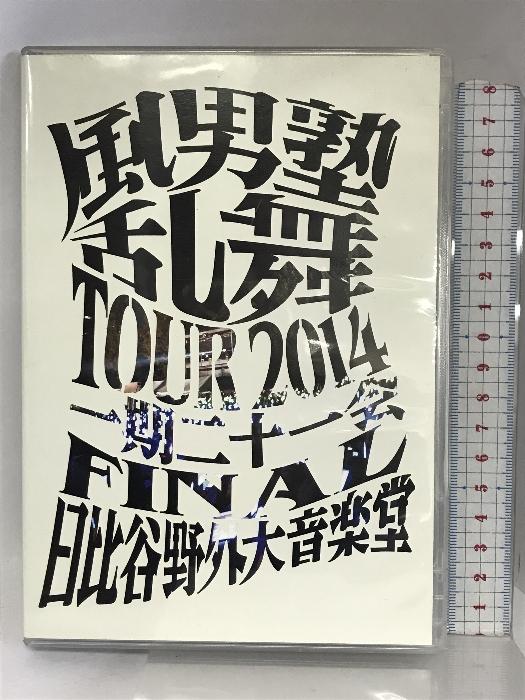 風男塾
乱舞
TOUR 2014
一期二十一会
FINAL
日比谷野外大音楽堂
8
7
6
5
4
3
2
1
0
9
8
7
6
5
4
3
2
1